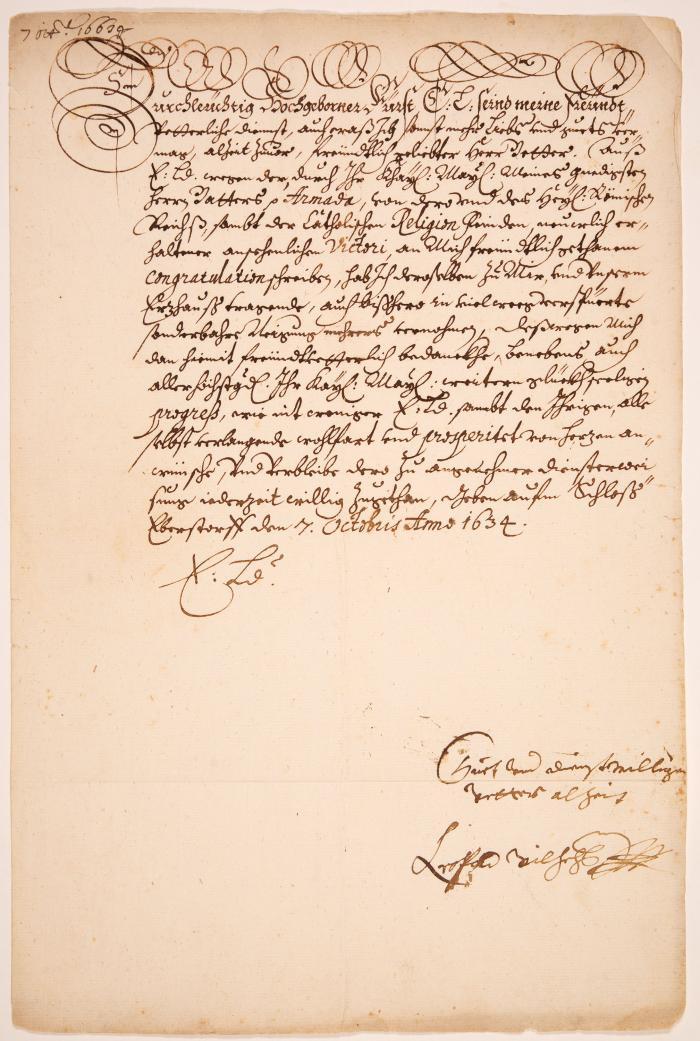 7 oct. 1660
Durchleüchtig Hochgeborner Fürst E: L: seind meine Freündt-
Vetterliche dienst, auch waß Ich sonst mehr Liebs und guets ver-
mag, alzeit zuvor, freündtlich geliebter Herr Vetter. Auß
E: Ld: wegen der, durch Ihr Khayl: Mayl: Meines gnedigsten
Herrn Vatters p Armada, von dero und des Heyl: Römischen
Reichß, sambt der Catholischen Religion Feinden, neuerlich er-
haltener ansehenlichen Victori, an Mich freündtlich gethanem
congratulation schreiben, hab Ich deroselben zu Mir, und Unserm
Erzhauß tragende, auch bißhero in viel weeg verspüerte
sonderbahre Neigung mehrers vernohmen, Deßwegen Mich
dan hiemit freündtvetterlich bedanckhe, benebens auch
allerhöchstged. Ihr Kayl: Mayl: weitern glückhseeligen
progreß, wie nit weniger E: Ld. sambt den Ihrigen, alle
selbst verlangende wohlfart und prosperitet von herzen an-
wünsche, Und verbleibe dero zu angenehmer diensterwei
sung iederzeit willig zugethan, Geben aufm Schloß
Eberstorff den 7. Octobris Anno 1634.
E: Ld.
Guet und dienstwilliger
vetter alzeit
Leopold Wilhelm